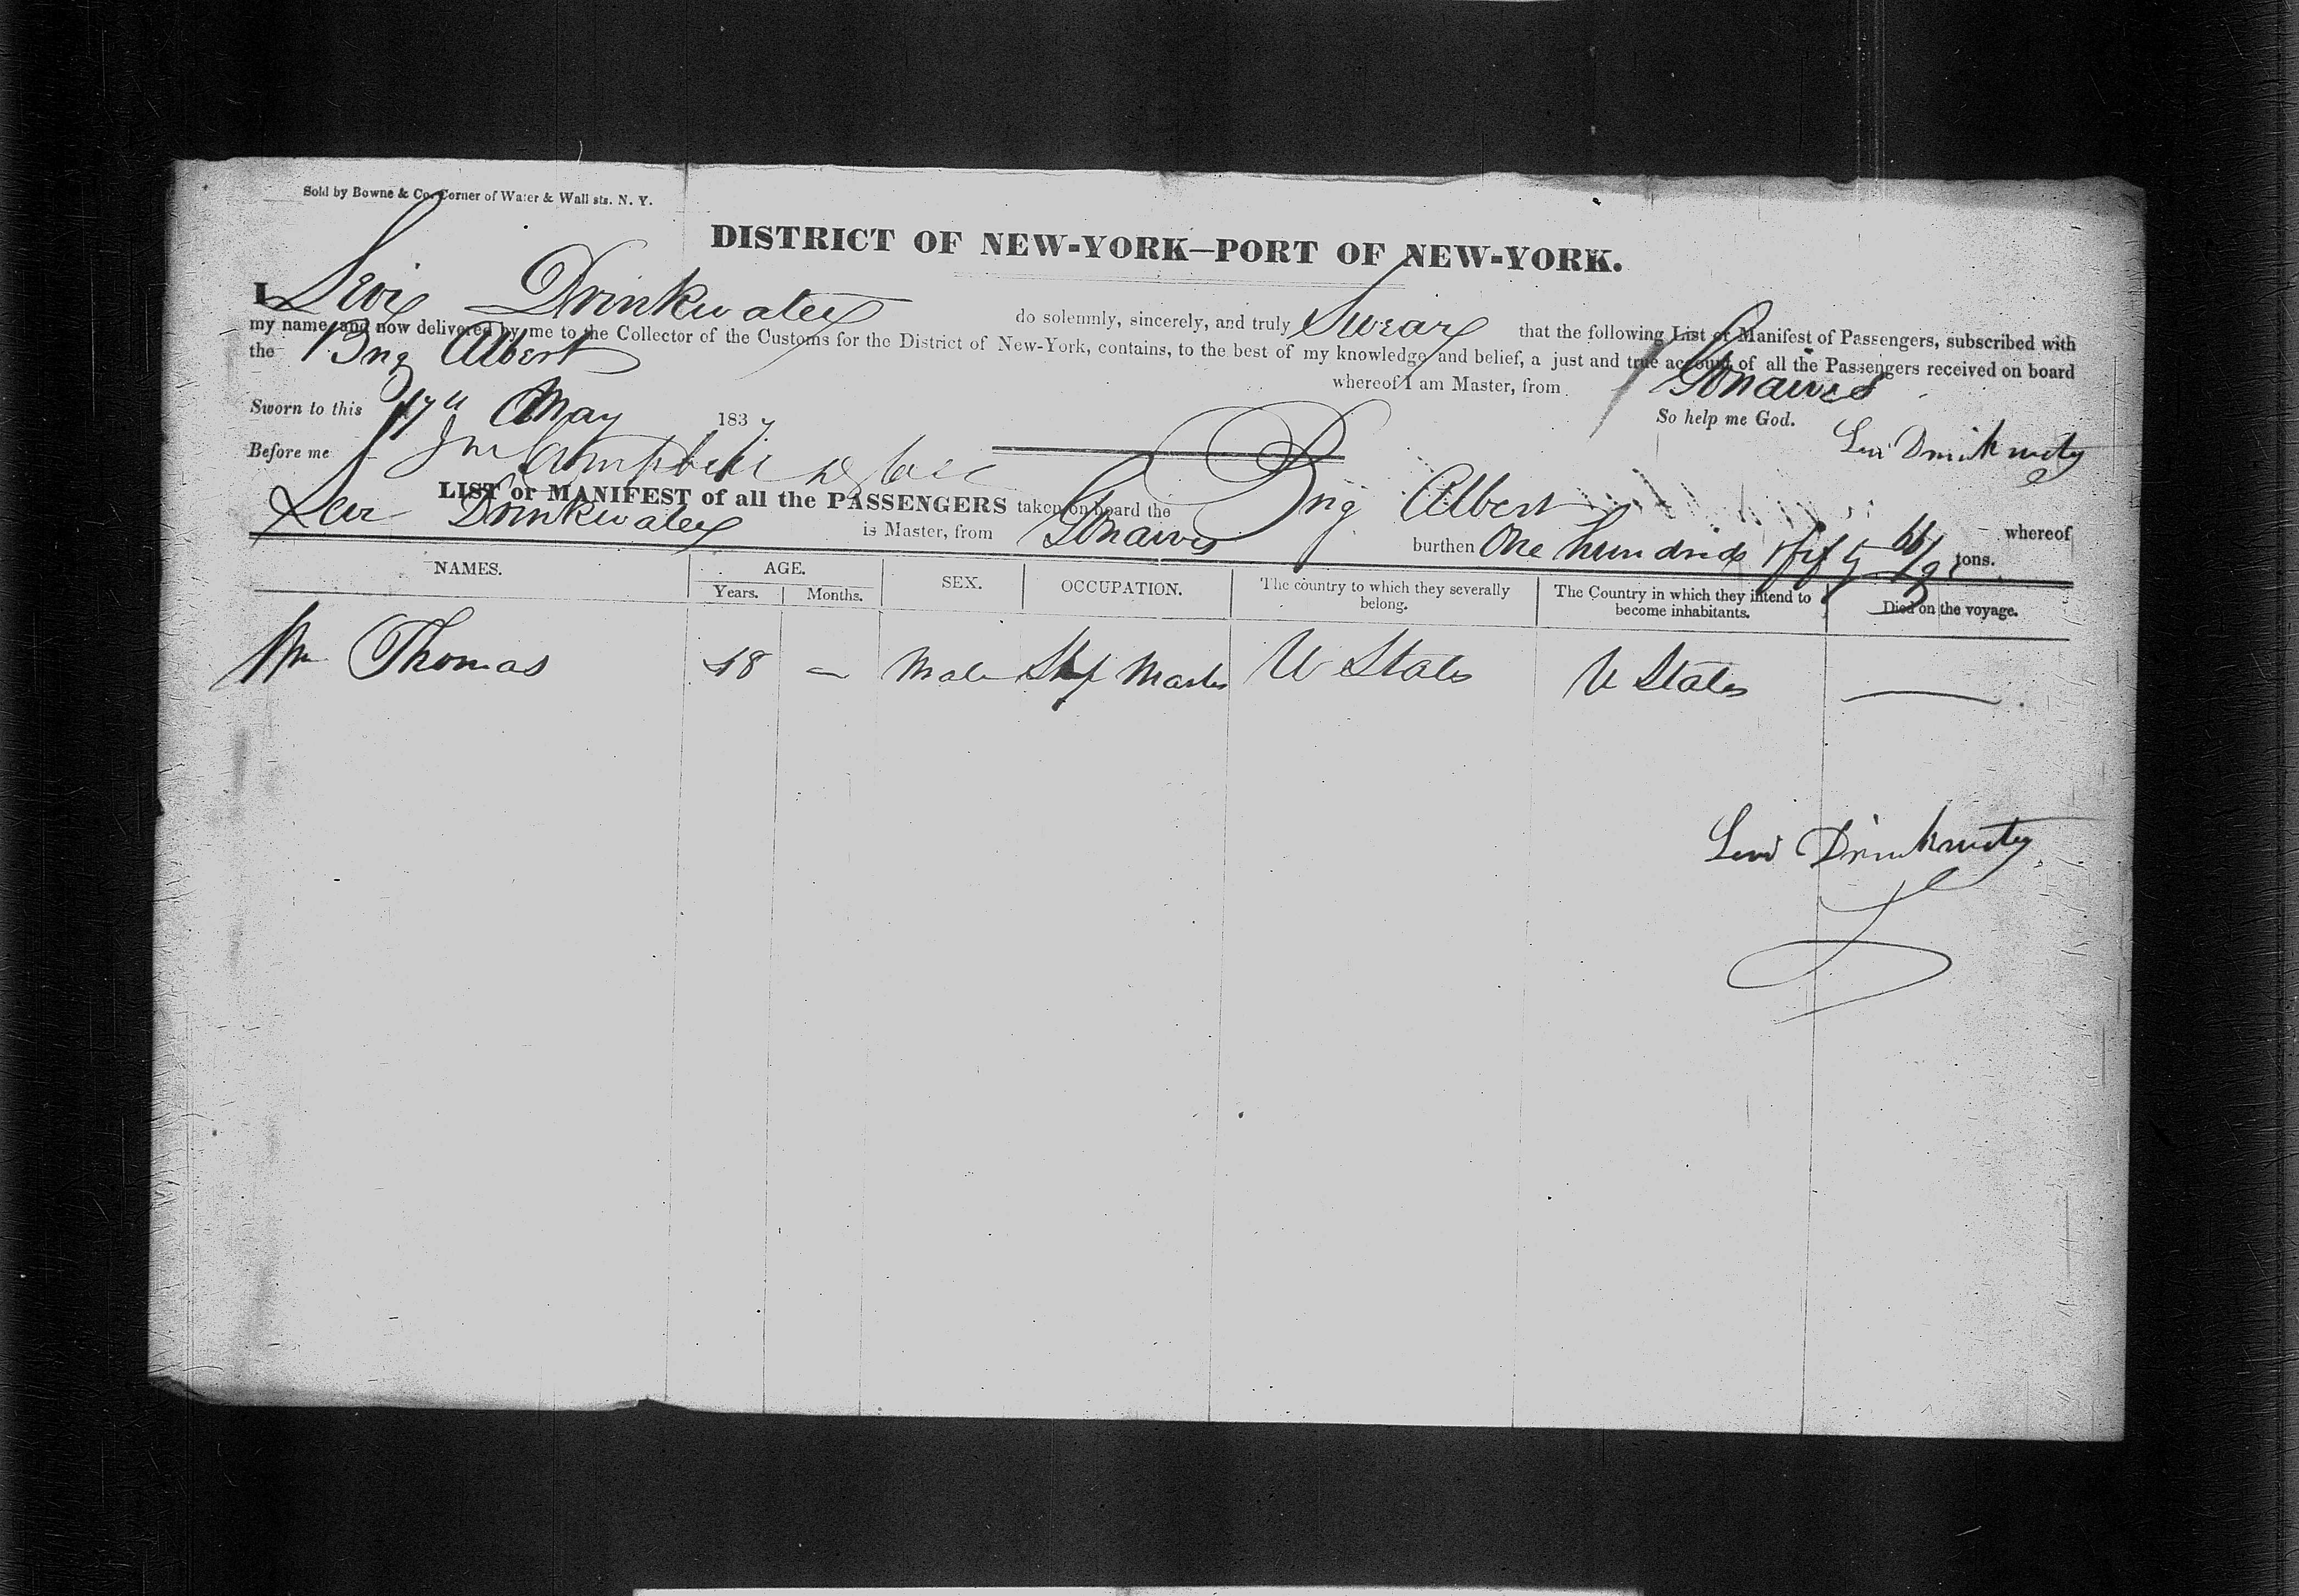 Sold by Bowne & Co. Corner of Water & Wall sts. N. Y.
DISTRICT OF NEW-YORK—PORT OF NEW-YORK.
I Levi Drinkwater do solemnly, sincerely, and truly Swear that the following List or Manifest of Passengers, subscribed with
my name, and now delivered by me to the Collector of the Customs for the District of New-York, contains, to the best of my knowledge and belief, a just and true account of all the Passengers received on board
the Brig Albert whereof I am Master, from Gonaives
Sworn to this 17th May 1837 So help me God.
Before me Campbell Levi Drinkwater
LIST or MANIFEST of all the PASSENGERS taken on board the Brig Albert whereof
Levi Drinkwater is Master, from Gonaives burthen One hundred fifty tons.
NAMES. AGE. SEX. OCCUPATION. The country to which they severally belong. The Country in which they intend to become inhabitants. Died on the voyage.
Years. Months.
Wm Thomas 48 — Male Shp Master U States U States —
Levi Drinkwater